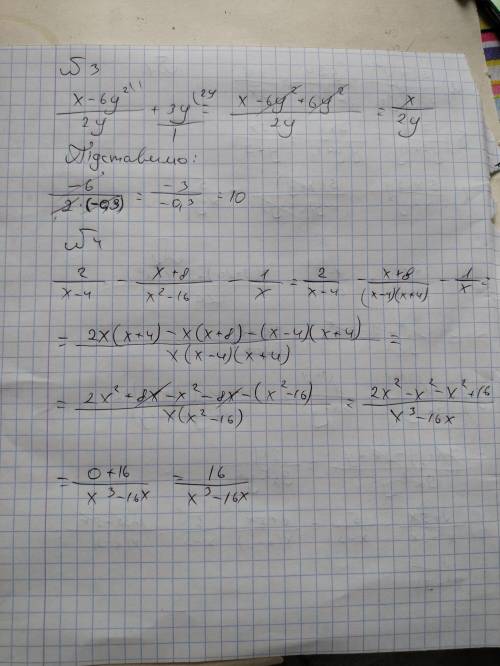 №3
(x-6y²)/2y + 3y/1 = (x-6y²+6y²)/2y = x/2y
Підставимо:
-6/(2·(-0,3)) = -3/-0,3 = 10
№4
2/(x-4) - (x+8)/(x²-16) - 1/x = 2/(x-4) - (x+8)/((x-4)(x+4)) - 1/x =
= (2x(x+4)-x(x+8)-(x-4)(x+4))/(x(x-4)(x+4)) =
= (2x²+8x-x²-8x-(x²-16))/(x(x²-16)) = (2x²-x²-x²+16)/(x³-16x)
= (0+16)/(x³-16x) = 16/(x³-16x)